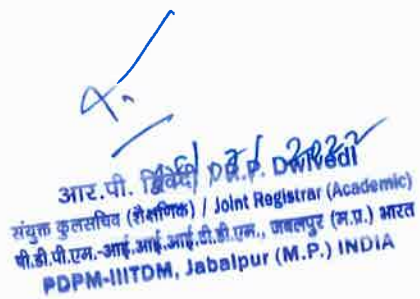 आर.पी. द्विवेदी / R.P. Dwivedi
संयुक्त कुलसचिव (शैक्षणिक) / Joint Registrar (Academic)
पी.डी.पी.एम.-आई.आई.आई.टी.डी.एम., जबलपुर (म.प्र.) भारत
PDPM-IIITDM, Jabalpur (M.P.) INDIA